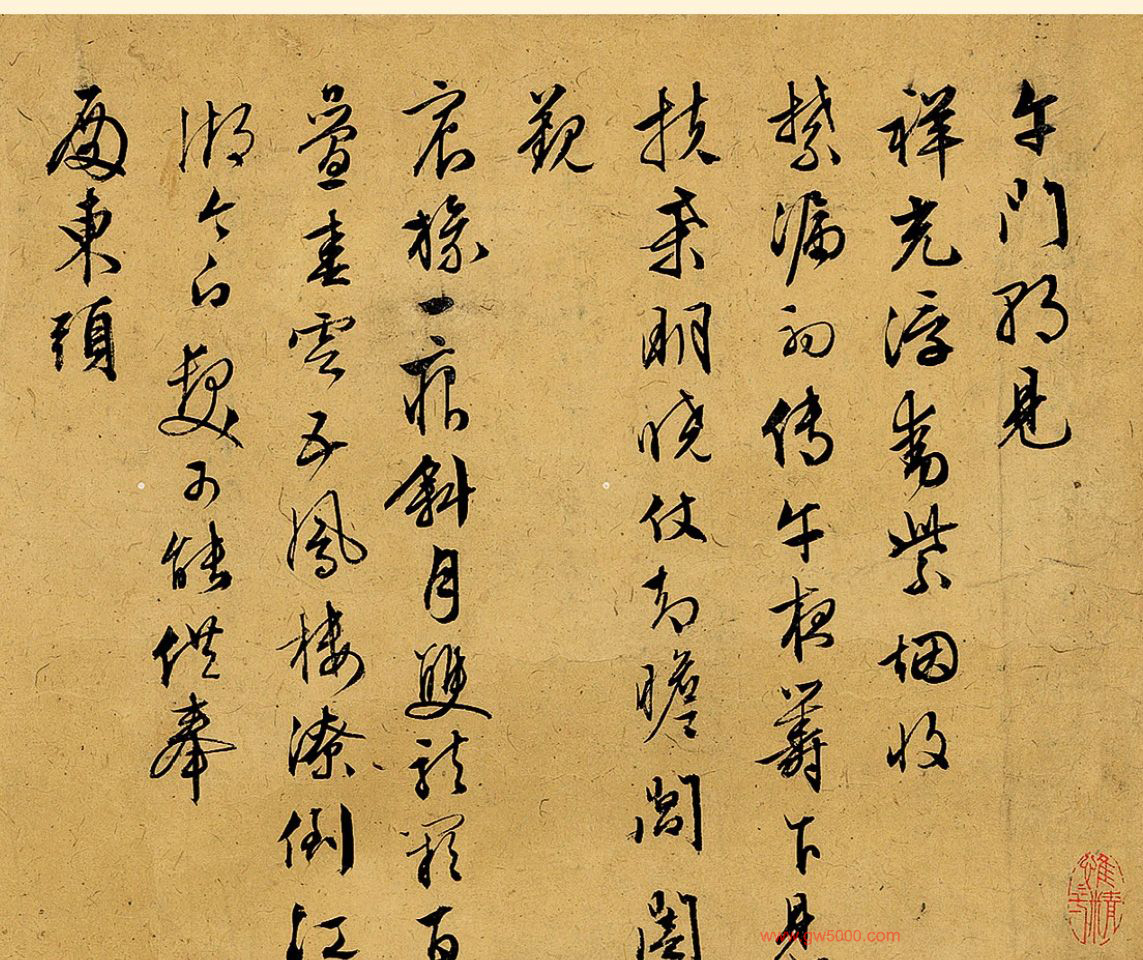 午門朝見
祥光浮動紫烟收
禁漏初傳午夜籌下見
扶桒明曉仗却瞻閶闔
覲
宸旒一痕斜月雙龍闕百
疊春雲五鳳樓潦倒江
湖今白髮可能供奉
殿東頭
www.gw5000.com